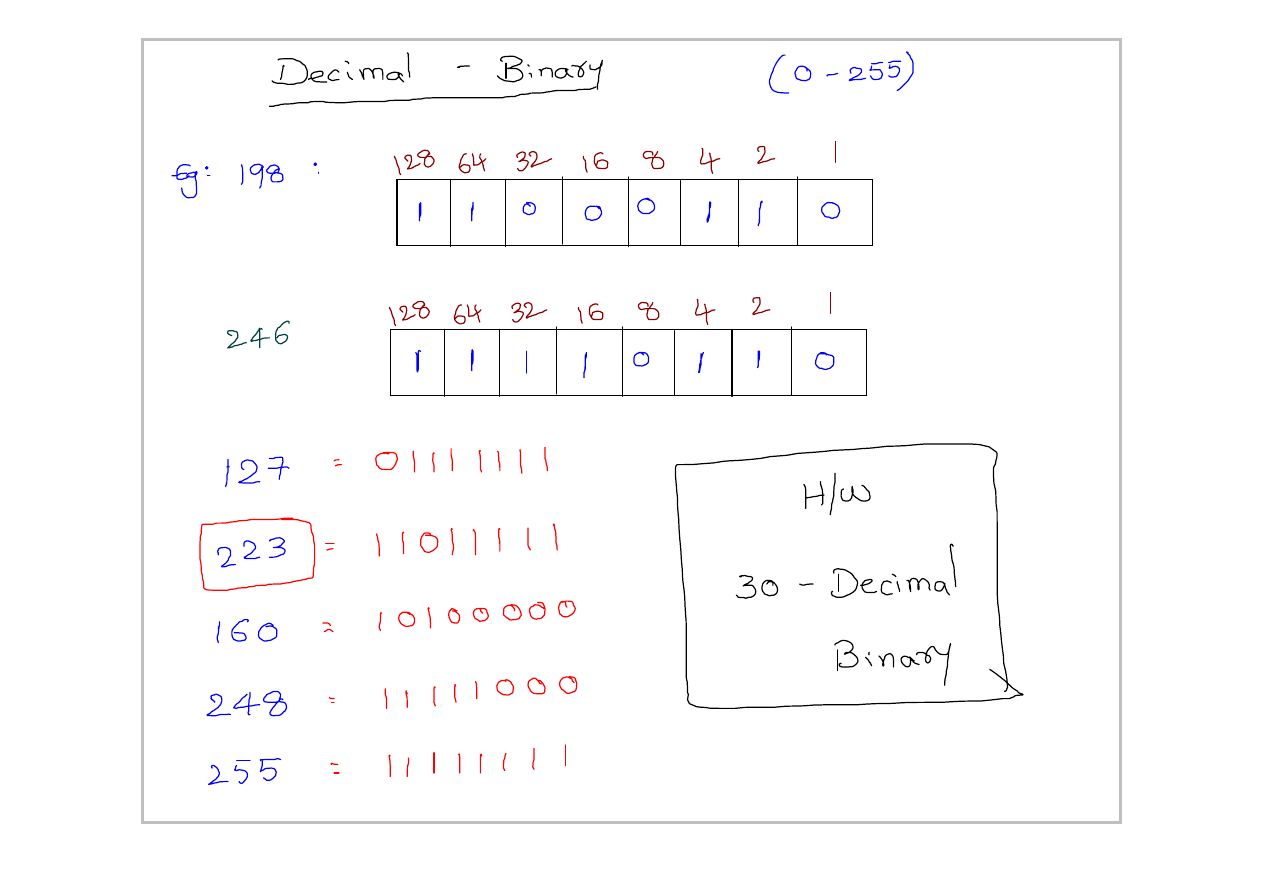 Decimal - Binary (0 - 255)
Eg: 198 :
128 64 32 16 8 4 2 1
1 1 0 0 0 1 1 0
128 64 32 16 8 4 2 1
246
1 1 1 1 0 1 1 0
127 = 01111111
223 = 11011111
160 = 10100000
248 = 11111000
255 = 11111111
H/W
30 - Decimal
Binary